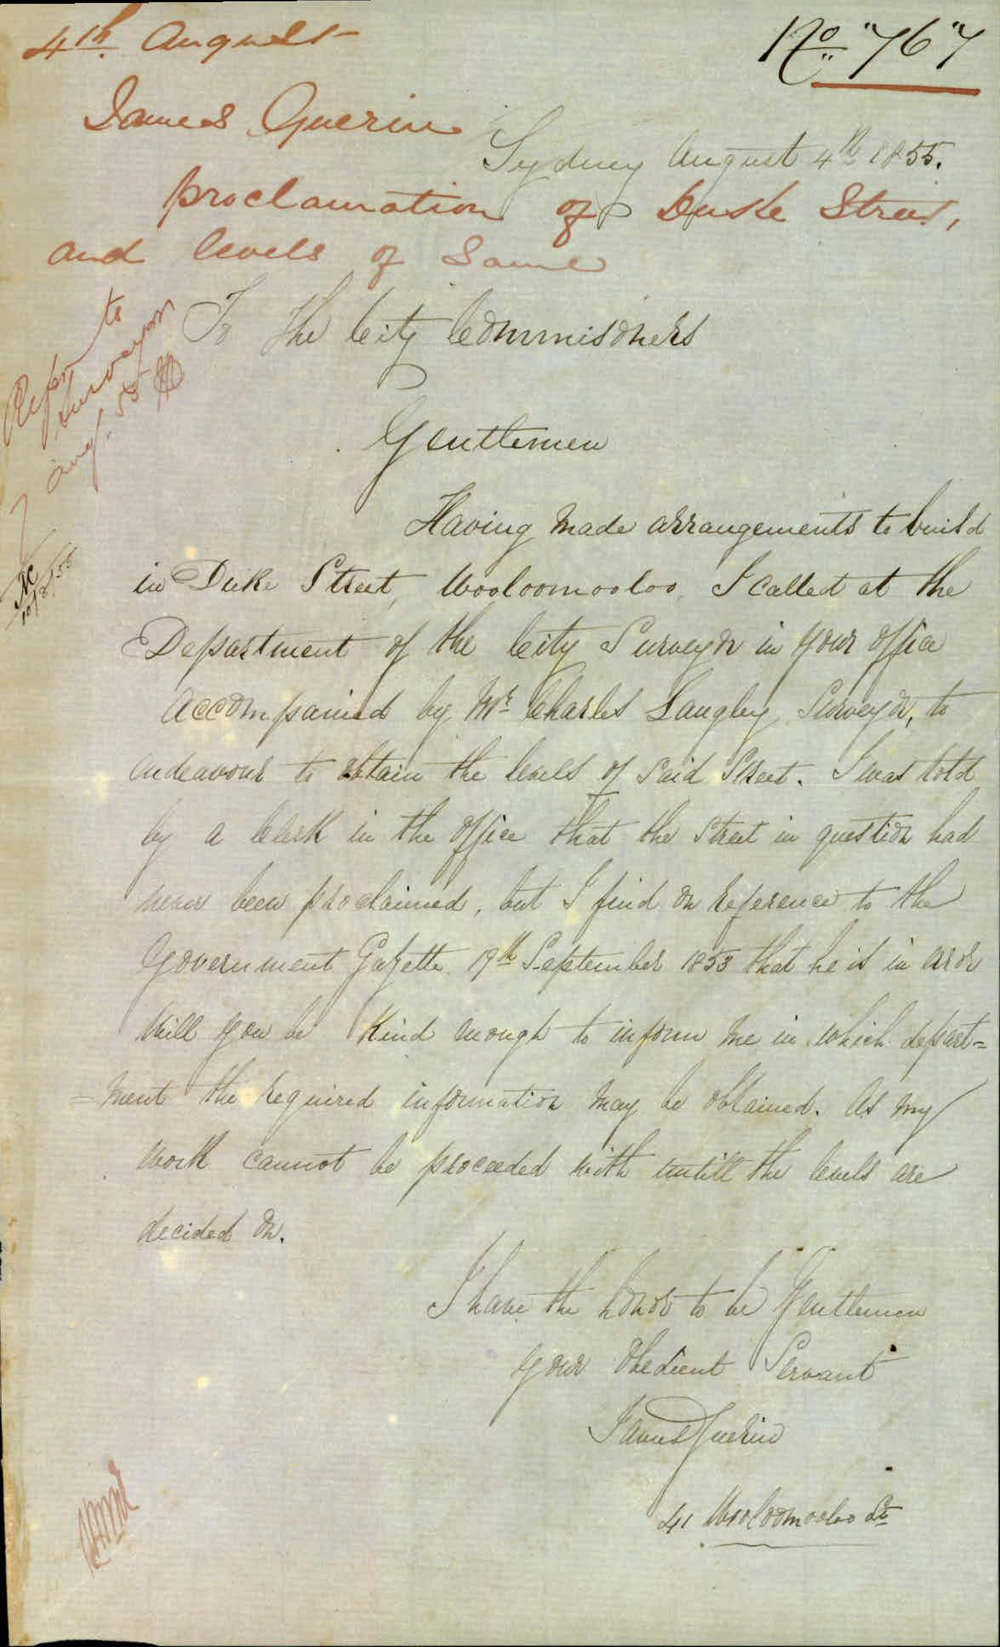 4th. August
No. "767"
James Guerin
Sydney August 4th 1855.
Proclamation of Duke Street,
and levels of Same
Refer to
Surveyor
Augt. 55
To The City Commisoners
Gentlemen
Having made arrangements to build
in Duke Street, Wooloomooloo, I called at the
Department of the City Surveyor in your office
accompanied by Mr. Charles Langley Surveyor, to
endeavour to obtain the levels of said Street. I was told
by a Clerk in the office that the Street in question had
never been proclaimed, but I find on reference to the
Government Gazette 19th September 1853 that he is in Error
Will you be Kind enough to inform me in which depart=
=ment the required information may be obtained. As my
work cannot be proceeded with untill the levels are
decided on.
I have the honor to be Gentlemen
your obedient Servant
James Guerin
41 Wooloomooloo St